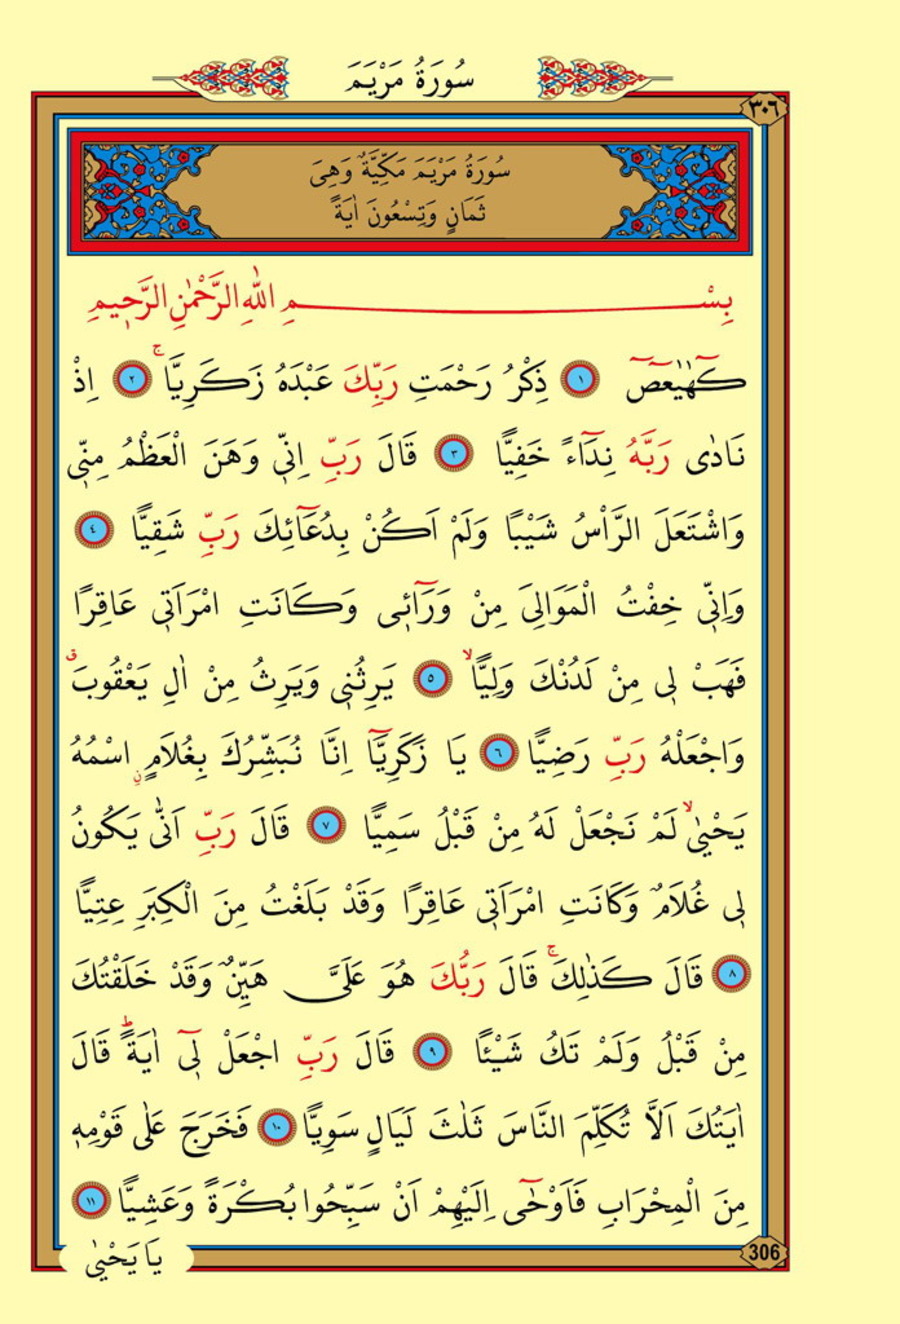 سُورَةُ مَرْيَمَ
٣٠٦
سُورَةُ مَرْيَمَ مَكِّيَّةٌ وَهِىَ
ثَمَانٍ وَتِسْعُونَ اٰيَةً
بِسْــــــــــمِ اللّٰهِ الرَّحْمٰنِ الرَّح۪يمِ
كٓهٰيٰعٓصٓ ١ ذِكْرُ رَحْمَتِ رَبِّكَ عَبْدَهُ زَكَرِيَّاۚ ٢ اِذْ
نَادٰى رَبَّهُ نِدَٓاءً خَفِيًّا ٣ قَالَ رَبِّ اِنّ۪ي وَهَنَ الْعَظْمُ مِنّ۪ي
وَاشْتَعَلَ الرَّأْسُ شَيْبًا وَلَمْ اَكُنْ بِدُعَٓائِكَ رَبِّ شَقِيًّا ٤
وَاِنّ۪ي خِفْتُ الْمَوَالِيَ مِنْ وَرَٓائ۪ي وَكَانَتِ امْرَاَت۪ي عَاقِرًا
فَهَبْ ل۪ي مِنْ لَدُنْكَ وَلِيًّاۙ ٥ يَرِثُن۪ي وَيَرِثُ مِنْ اٰلِ يَعْقُوبَۗ
وَاجْعَلْهُ رَبِّ رَضِيًّا ٦ يَا زَكَرِيَّٓا اِنَّا نُبَشِّرُكَ بِغُلَامٍۨ اسْمُهُ
يَحْيٰىۙ لَمْ نَجْعَلْ لَهُ مِنْ قَبْلُ سَمِيًّا ٧ قَالَ رَبِّ اَنّٰى يَكُونُ
ل۪ي غُلَامٌ وَكَانَتِ امْرَاَت۪ي عَاقِرًا وَقَدْ بَلَغْتُ مِنَ الْكِبَرِ عِتِيًّا
٨ قَالَ كَذٰلِكَۚ قَالَ رَبُّكَ هُوَ عَلَيَّ هَيِّنٌ وَقَدْ خَلَقْتُكَ
مِنْ قَبْلُ وَلَمْ تَكُ شَيْـًٔا ٩ قَالَ رَبِّ اجْعَلْ ل۪ٓي اٰيَةًۜ قَالَ
اٰيَتُكَ اَلَّا تُكَلِّمَ النَّاسَ ثَلٰثَ لَيَالٍ سَوِيًّا ١٠ فَخَرَجَ عَلٰى قَوْمِه۪
مِنَ الْمِحْرَابِ فَاَوْحٰٓى اِلَيْهِمْ اَنْ سَبِّحُوا بُكْرَةً وَعَشِيًّا ١١
306
يَا يَحْيٰى